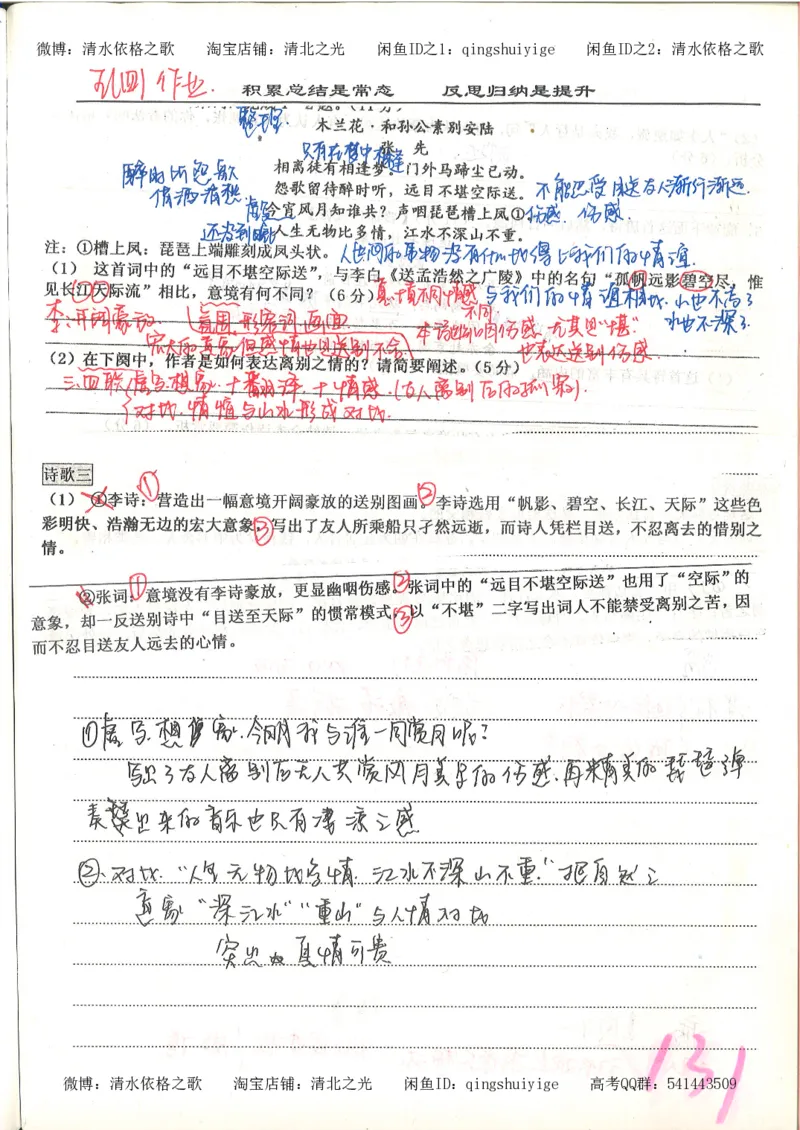 微博：清水依格之歌　淘宝店铺：清北之光　闲鱼ID之1：qingshuiyige　闲鱼ID之2：清水依格之歌
作业
积累总结是常态　反思归纳是提升
整理
木兰花·和孙公素别安陆
只有在梦中相逢
张　先
相离徒有相逢梦。门外马蹄尘已动。
醉时听怨歌
怨歌留待醉时听，远目不堪空际送。
不能忍受目送友人渐行渐远
借酒消愁
虚写
今宵风月知谁共？声咽琵琶槽上凤①
伤感
人生无物比多情，江水不深山不重。
注：①槽上凤：琵琶上端雕刻成凤头状。
人世间的事物没有什么比得上我们的情谊
（1） 这首词中的“远目不堪空际送”，与李白《送孟浩然之广陵》中的名句“孤帆远影碧空尽，惟
见长江天际流”相比，意境有何不同？（6分）
意境不同 情感不同
与我们的情谊相比，山也不高了
水也不深了
李：开阔豪放
氛围 形容词 画面
本词幽咽伤感 尤其是“堪”
也表达送别伤感
（2）在下阕中，作者是如何表达离别之情的？请简要阐述。（5分）
三、四联 虚写想象
对比 情谊与山水形成对比
诗歌三
（1） ①李诗：①营造出一幅意境开阔豪放的送别图画。②李诗选用“帆影、碧空、长江、天际”这些色
彩明快、浩瀚无边的宏大意象，③写出了友人所乘船只孑然远逝，而诗人凭栏目送，不忍离去的惜别之
情。
②张词：①意境没有李诗豪放，更显幽咽伤感。②张词中的“远目不堪空际送”也用了“空际”的
意象，却一反送别诗中“目送至天际”的惯常模式，③以“不堪”二字写出词人不能禁受离别之苦，因
而不忍目送友人远去的心情。
①虚写想象，今明我与谁一同赏月呢？
写出了友人离别后无人共赏风月美景的伤感，再精美的琵琶弹
奏出来的音乐也只有凄凉之感
②对比，“人生无物比多情，江水不深山不重”把自然之
意象“深江水”“重山”与人情对比
突出 真情可贵
131
微博：清水依格之歌　淘宝店铺：清北之光　闲鱼ID：qingshuiyige　高考QQ群：541443509